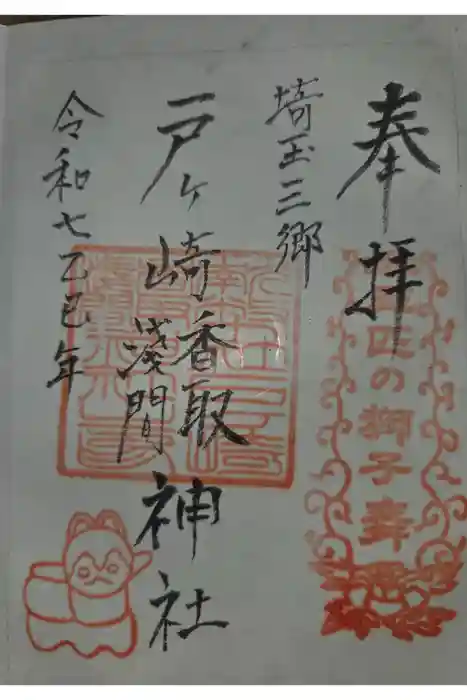 奉拝
埼玉三郷
戸ヶ崎香取
淺間
神社
令和七乙巳年
三匹の獅子舞